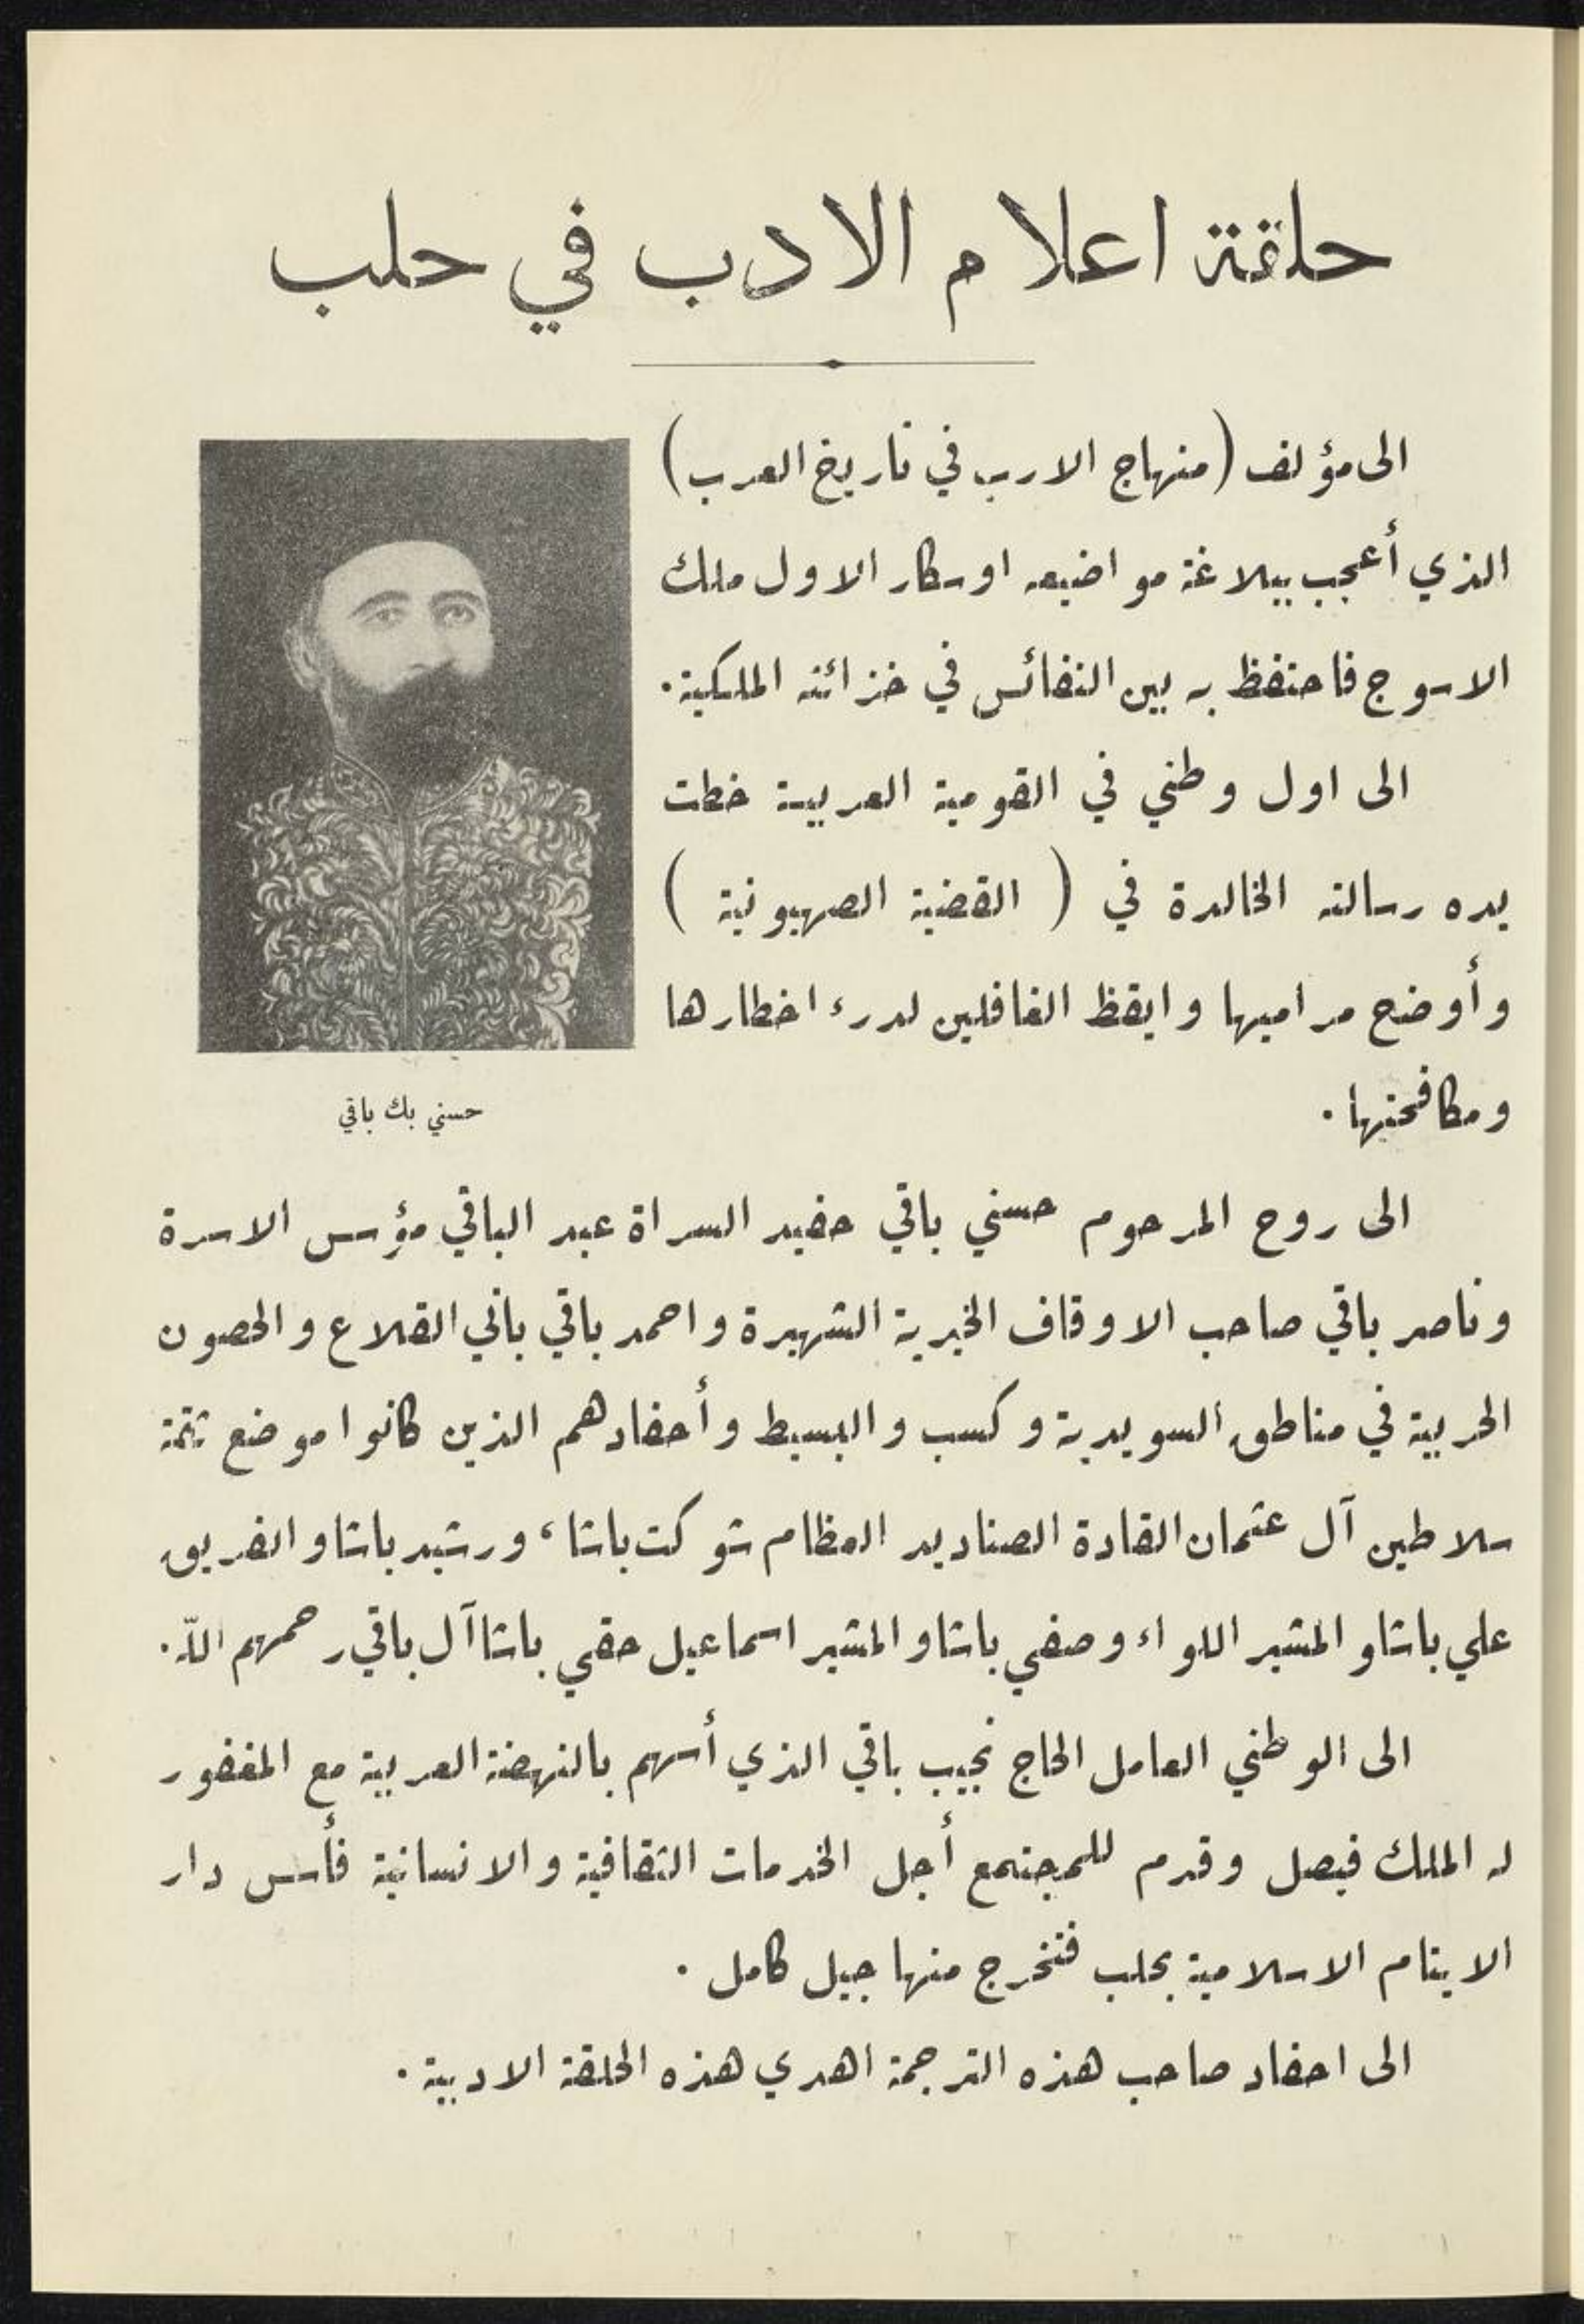 حلقة اعلام الادب في حلب
الى مؤلف (منهاج الارب في تاريخ العرب)
الذي أعجب ببلاغة مواضيعه اوسكار الاول ملك
الاسوج فاحتفظ به بين النفائس في خزائنه الملكية.
الى اول وطني في القومية العربية خطت
يده رسالته الخالدة في ( القضية الصهيونية )
وأوضح مراميها وايقظ الغافلين لدرء اخطارها
ومكافحتها .
حسني بك باقي
الى روح المرحوم حسني باقي حفيد السراة عبد الباقي مؤسس الاسرة
وناصر باقي صاحب الاوقاف الخيرية الشهيرة واحمد باقي باني القلاع والحصون
الحربية في مناطق السويدية وكسب والبسيط وأحفادهم الذين كانوا موضع ثقة
سلاطين آل عثمان القادة الصناديد العظام شوكت باشا ، ورشيد باشا والفريق
علي باشا والمشير اللواء وصفي باشا والمشير اسماعيل حقي باشا آل باقي رحمهم الله .
الى الوطني العامل الحاج نجيب باقي الذي أسهم بالنهضة العربية مع المغفور
له الملك فيصل وقدم للمجتمع أجل الخدمات الثقافية والانسانية فأسس دار
الايتام الاسلامية بحلب فتخرج منها جيل كامل .
الى احفاد صاحب هذه الترجمة اهدي هذه الحلقة الادبية .